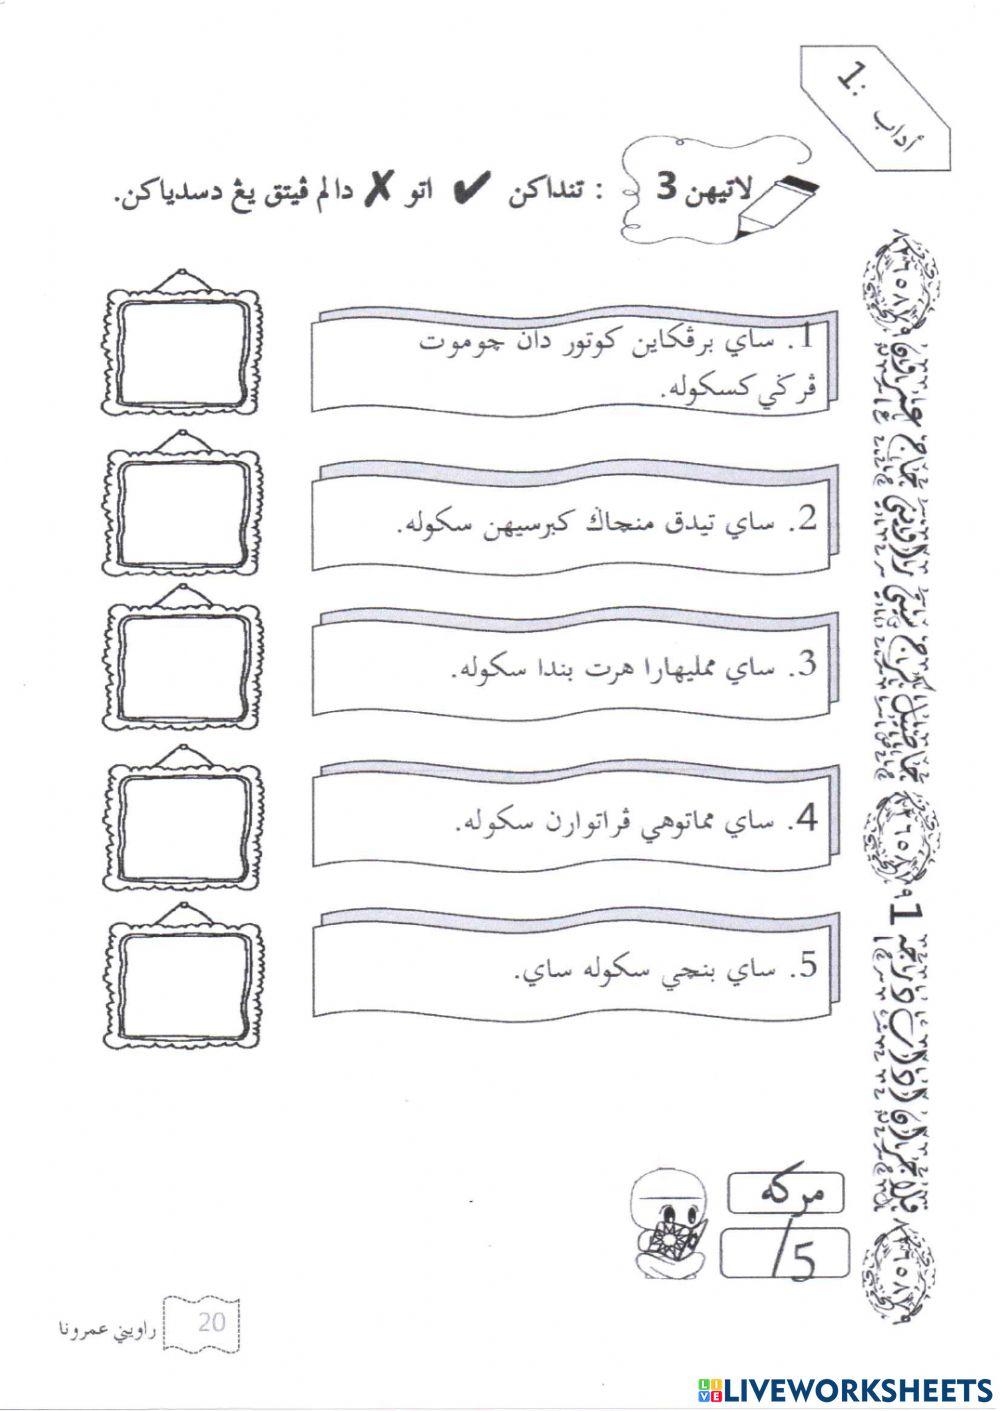 أداب :1
لاتيهن 3 : تنداكن ✔ اتو ✗ دالم ڤيتق يڠ دسدياكن.
1. ساي برڤكاين كوتور دان چوموت
ڤرݢي كسكوله.
2. ساي تيدق منجاݢ كبرسيهن سكوله.
3. ساي مميليهارا هرت بندا سكوله.
4. ساي مماتوهي ڤراتوارن سكوله.
5. ساي بنچي سكوله ساي.
مركه
/5
20
راويني عمرونا
LIVEWORKSHEETS